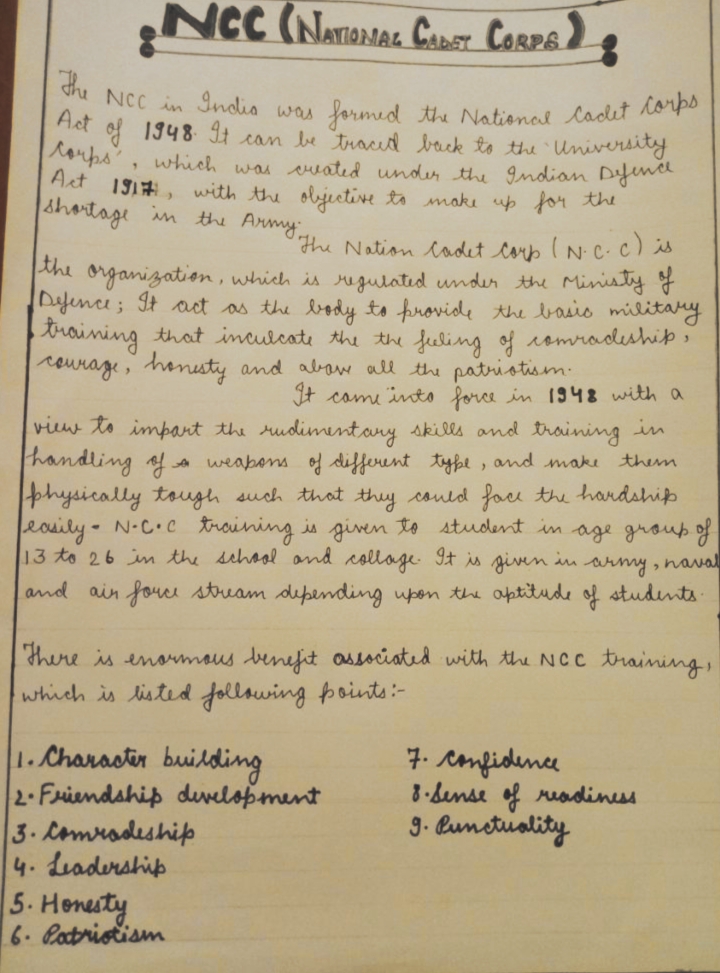 NCC (NATIONAL CADET CORPS)
The NCC in India was formed the National Cadet Corps
Act of 1948. It can be traced back to the University
Corps', which was created under the Indian Defence
Act 1917, with the objective to make up for the
shortage in the Army.
The Nation Cadet Corp (N.C.C) is
the organization, which is regulated under the Ministy of
Defence; It act as the body to provide the basic military
training that inculcate the the feeling of comradeship,
courage, honesty and above all the patriotism.
It came into force in 1948 with a
view to impart the rudimentary skills and training in
handling of a weapons of different type, and make them
physically tough such that they could face the hardship
easily - N.C.C training is given to student in age group of
13 to 26 in the school and collage. It is given in army, naval
and air force stream depending upon the aptitude of students.
There is enormous benefit associated with the NCC training,
which is listed following points:-
1. Character building
2. Friendship development
3. Comradeship
4. Leadership
5. Honesty
6. Patriotism
7. Confidence
8. Sense of readiness
9. Punctuality